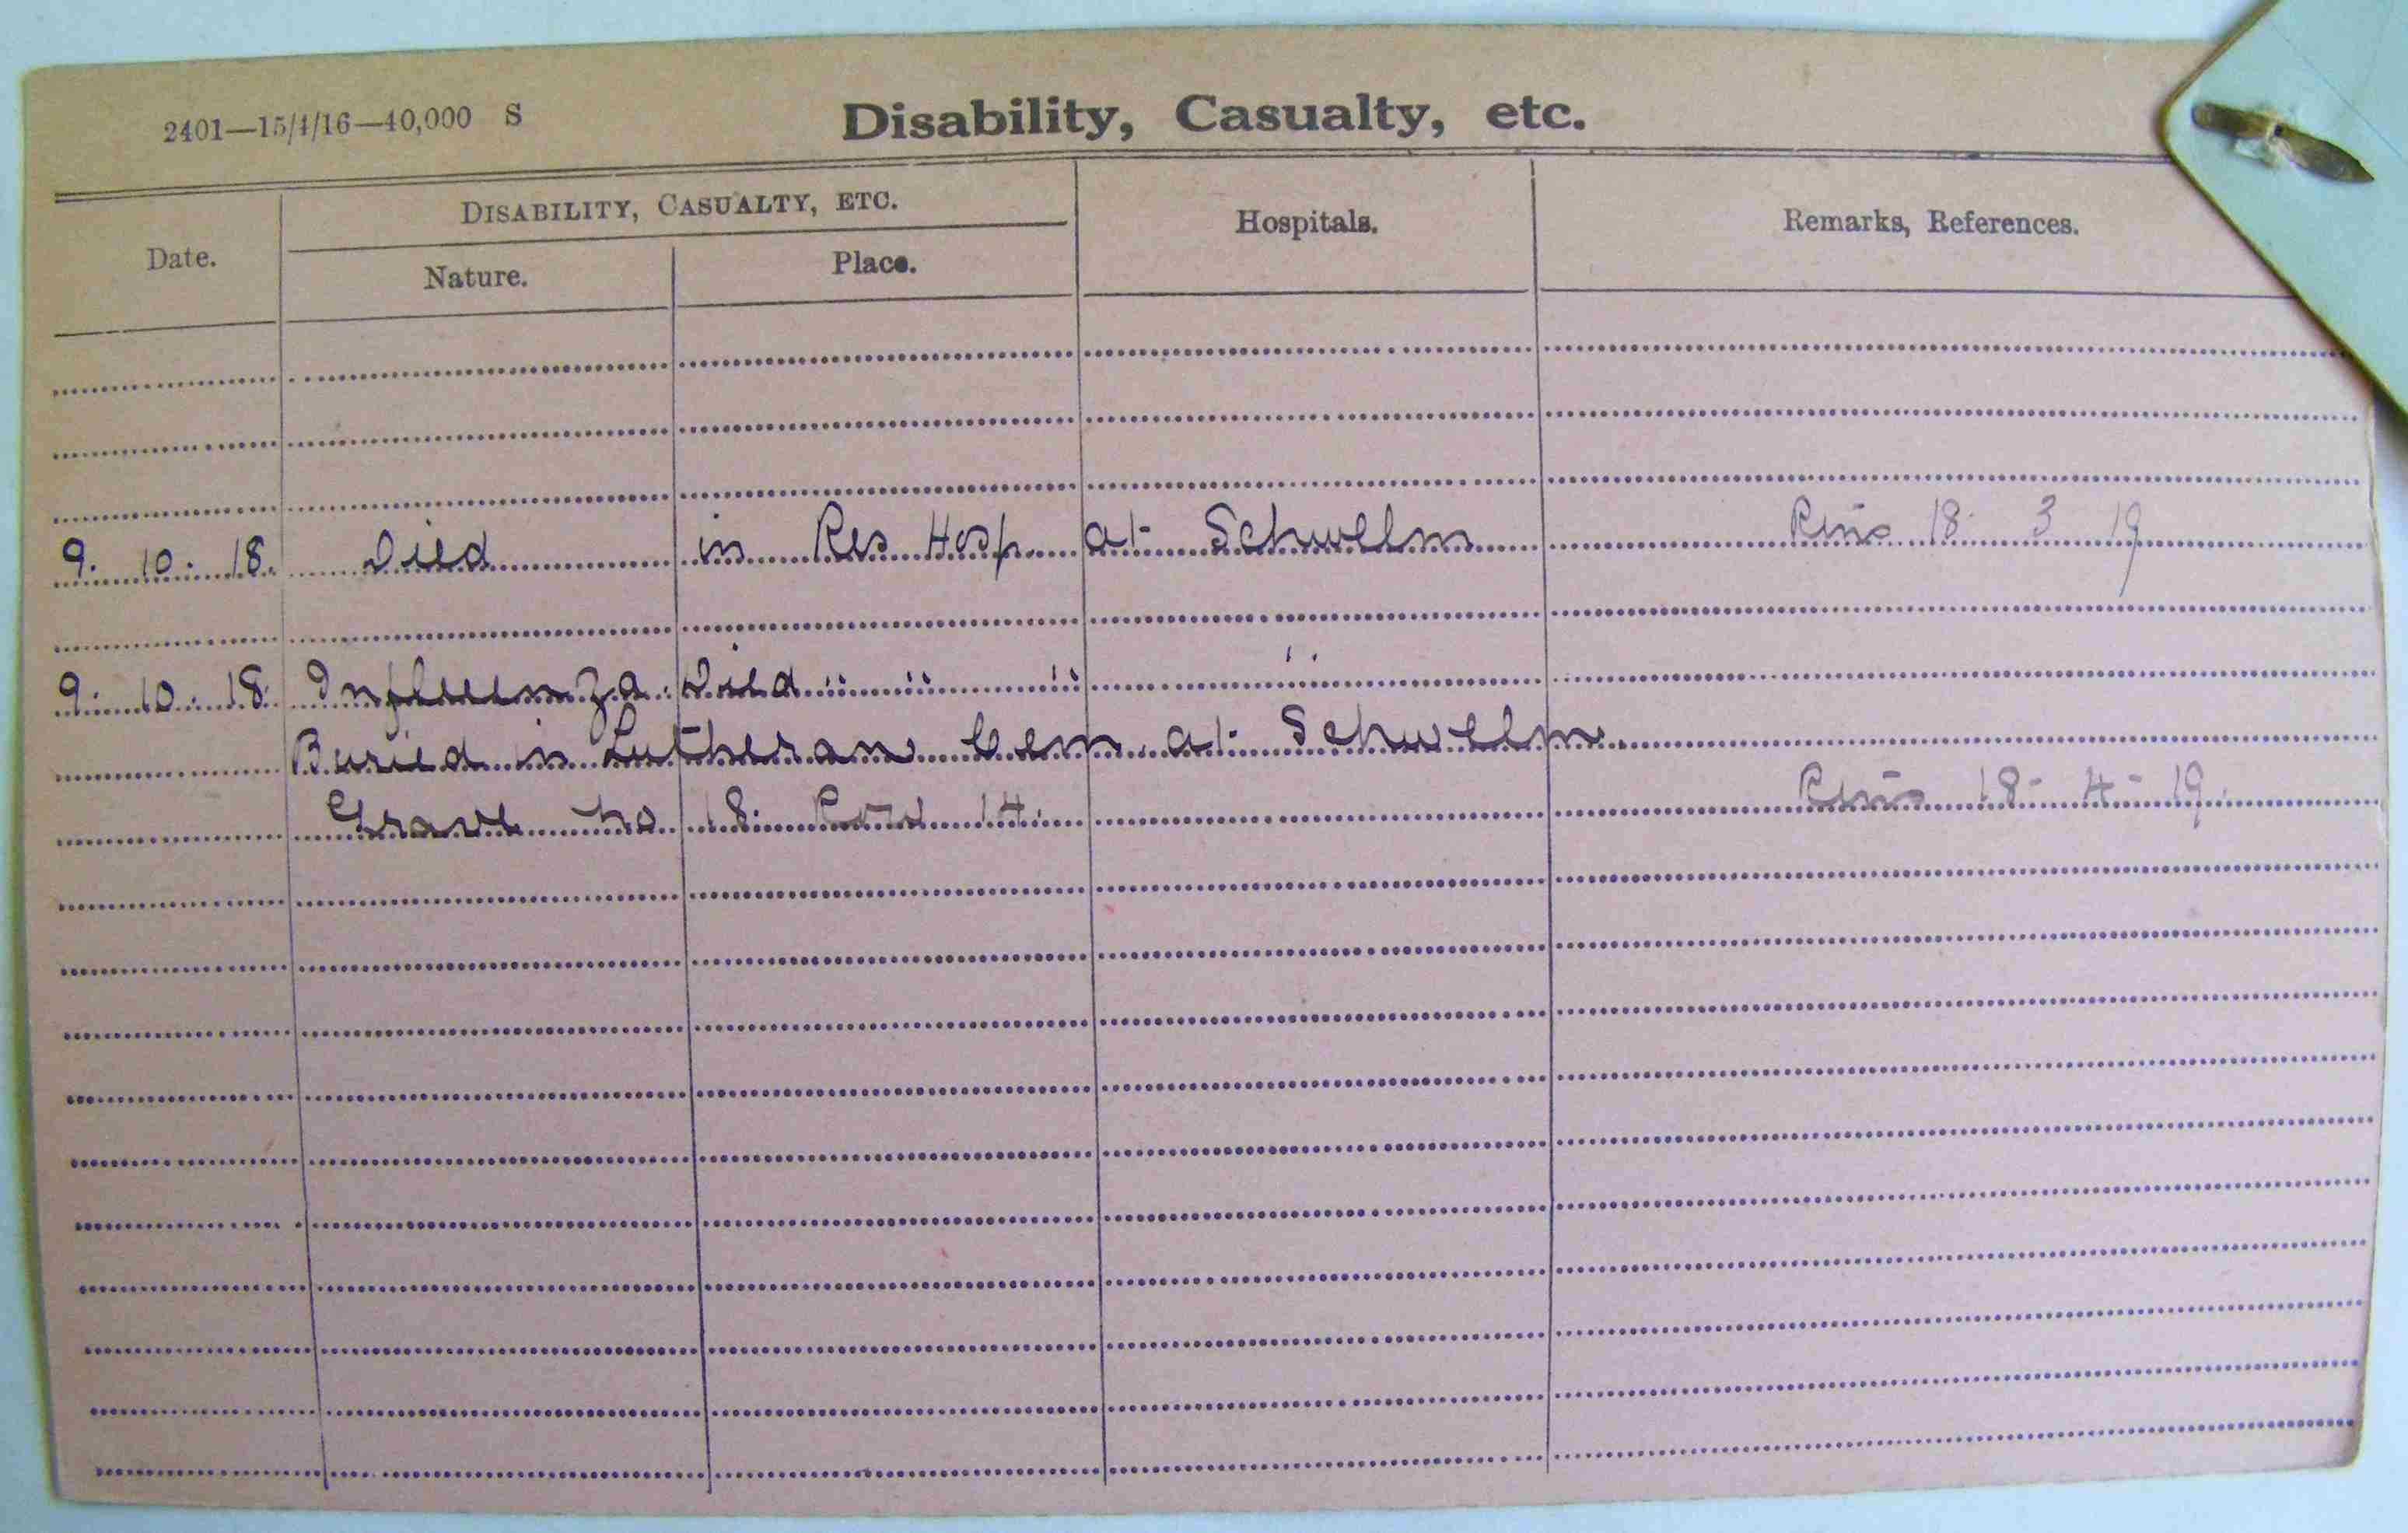 2401—15/4/16—40,000 S
Disability, Casualty, etc.
Date.
DISABILITY, CASUALTY, ETC.
Nature.
Place.
Hospitals.
Remarks, References.
9. 10. 18. Died in Res Hosp at Schwelm 18. 3 19
9. 10. 18 Influenza. Died " " " "
Buried in Lutheran Cem at Schwelm.
Grave No 18. Row 14. 18-4-19